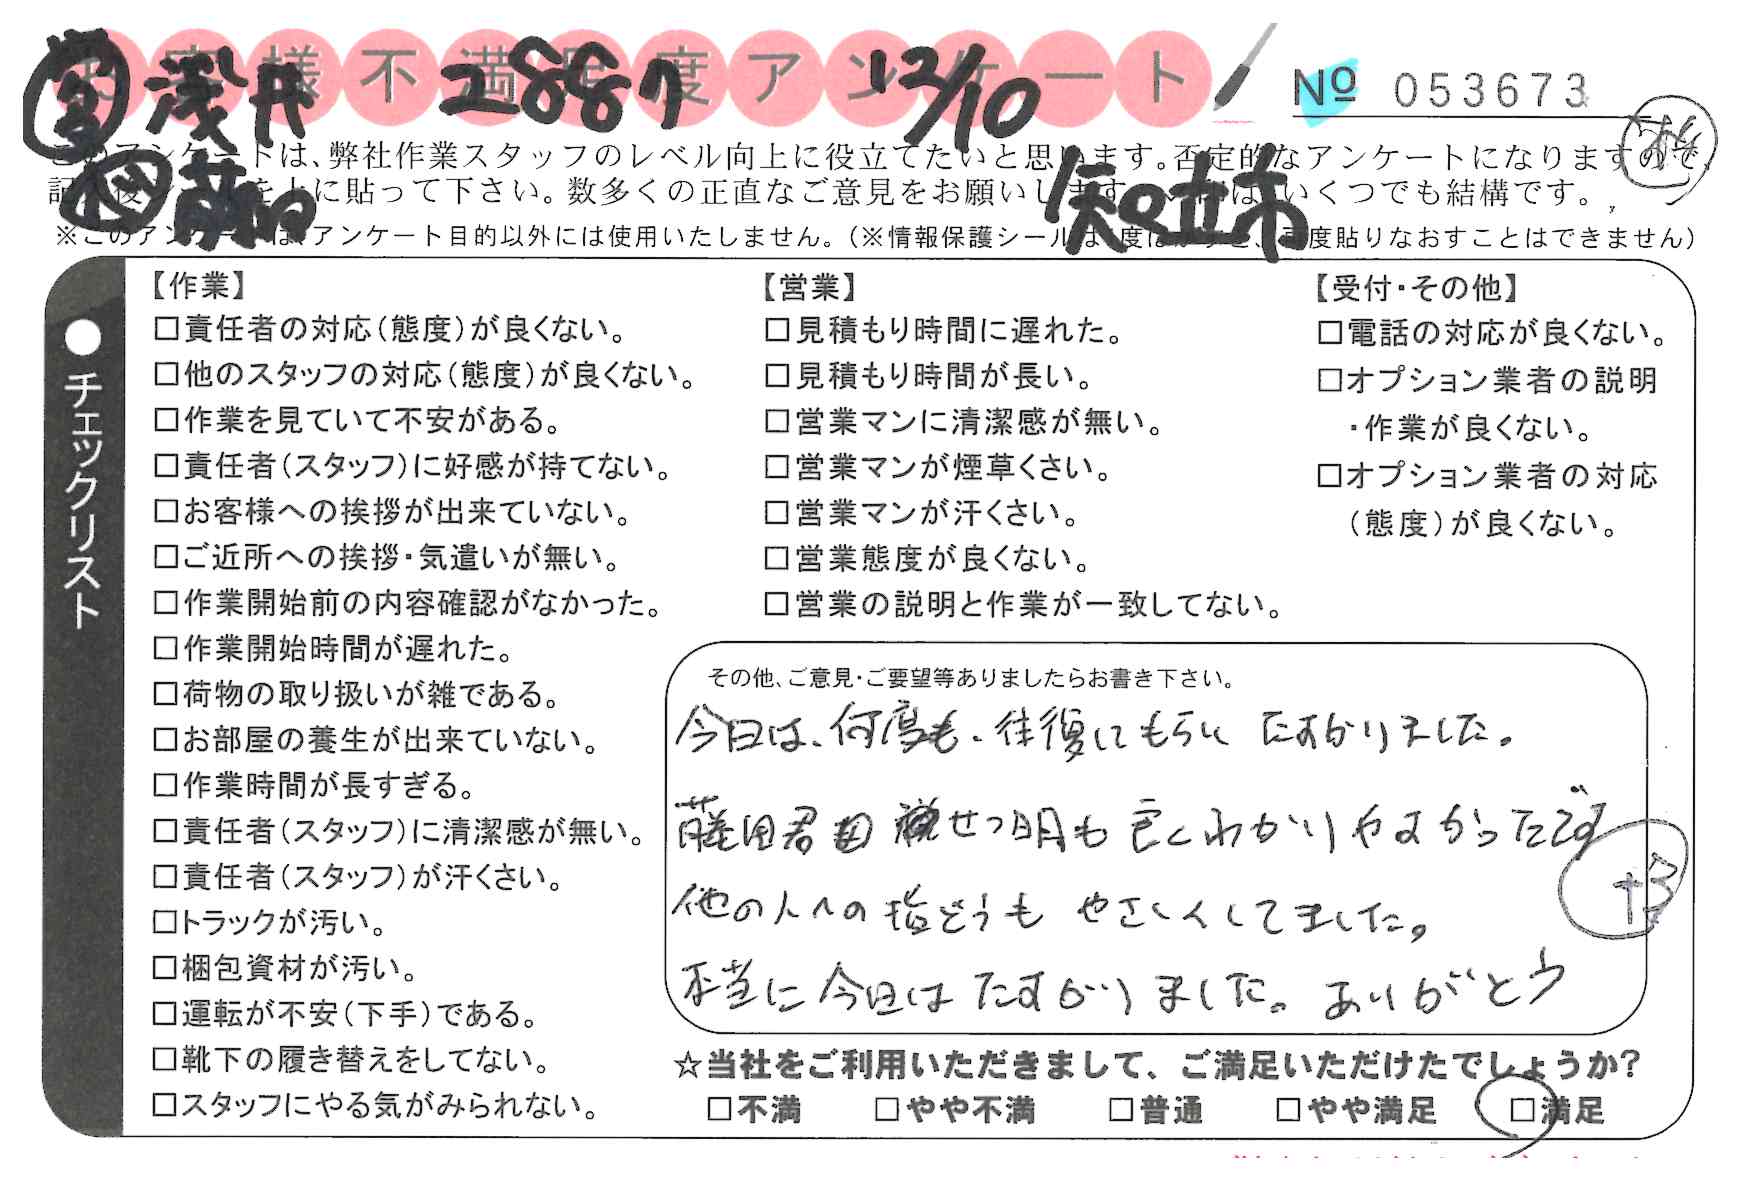 お客様不満足度アンケート
№ 053673
営 浅井 2887 12/10
このアンケートは、弊社作業スタッフのレベル向上に役立てたいと思います。否定的なアンケートになりますので、
を上に貼って下さい。数多くの正直なご意見をお願いします。 いくつでも結構です。
知立市
※このアンケートは、アンケート目的以外には使用いたしません。(※情報保護シールは1度はがすと、再度貼りなおすことはできません)
●チェックリスト
【作業】
□責任者の対応(態度)が良くない。
□他のスタッフの対応(態度)が良くない。
□作業を見ていて不安がある。
□責任者(スタッフ)に好感が持てない。
□お客様への挨拶が出来ていない。
□ご近所への挨拶・気遣いが無い。
□作業開始前の内容確認がなかった。
□作業開始時間が遅れた。
□荷物の取り扱いが雑である。
□お部屋の養生が出来ていない。
□作業時間が長すぎる。
□責任者(スタッフ)に清潔感が無い。
□責任者(スタッフ)が汗くさい。
□トラックが汚い。
□梱包資材が汚い。
□運転が不安(下手)である。
□靴下の履き替えをしてない。
□スタッフにやる気がみられない。
【営業】
□見積もり時間に遅れた。
□見積もり時間が長い。
□営業マンに清潔感が無い。
□営業マンが煙草くさい。
□営業マンが汗くさい。
□営業態度が良くない。
□営業の説明と作業が一致してない。
【受付・その他】
□電話の対応が良くない。
□オプション業者の説明
・作業が良くない。
□オプション業者の対応
(態度)が良くない。
その他、ご意見・ご要望等ありましたらお書き下さい。
今日は、何度も、往復してもらい たすかりました。
藤田君 せつ明も良くわかりやすかったです
他の人への指どうも やさしくしてました。
本当に今日はたすかりました。ありがとう
+3
☆当社をご利用いただきまして、ご満足いただけたでしょうか?
□不満 □やや不満 □普通 □やや満足 □満足